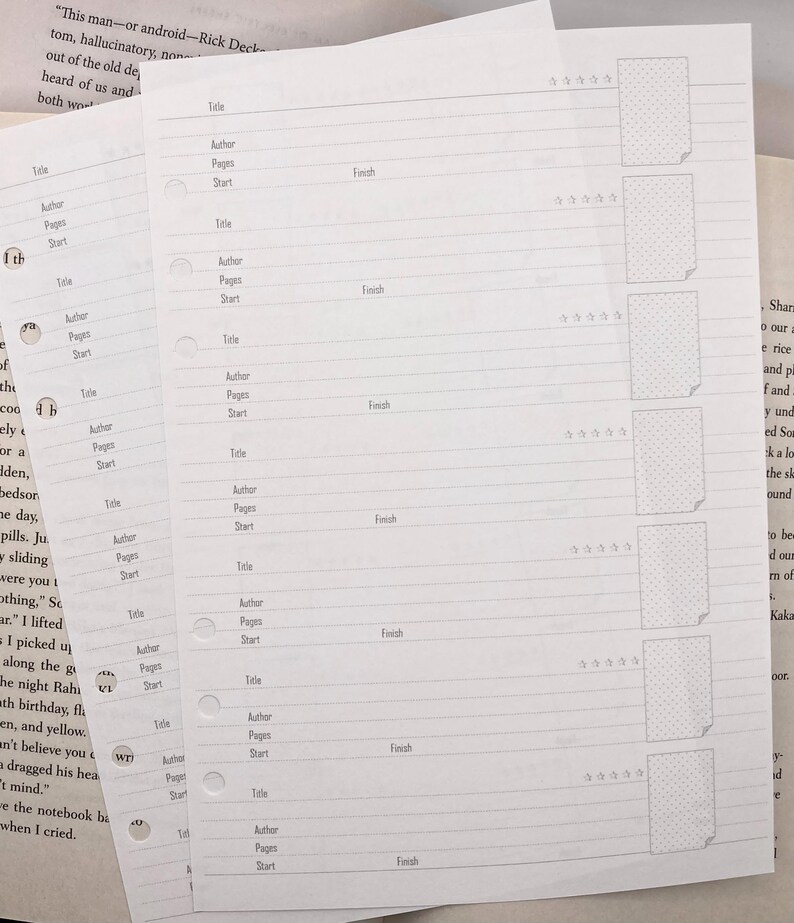 “This man—or android—Rick Decka
tom, hallucinatory, non
out of the old de
heard of us and
both wor
Title
Author
Pages
Start Finish
Title
Author
Pages
Start Finish
Title
Author
Pages
Start Finish
Title
Author
Pages
Start Finish
Title
Author
Pages
Start Finish
Title
Author
Pages
Start Finish
Title
Author
Pages
Start Finish
Title
Author
Pages
Start
I th
Title
Author
Pages
Start
ya
Title
Author
Pages
Start
d h
Title
Author
Pages
Start
Title
Author
Pages
Start
Title
Author
Pages
Start
wr
Titl
of
the
coo
ely e
or a
dden,
bedsor
ne day,
pills. Ju
y sliding
were you t
othing,” So
ar.” I lifted
s I picked up
along the g
he night Rahi
th birthday, fl
en, and yellow.
n't believe you
dragged his hea
't mind.”
ve the notebook ba
when I cried.
, Shar
o our a
e rice
and pl
f and
y und
ed Son
k a lo
the sk
ound
to be
d our
rn of
s.
Kaka
oor.